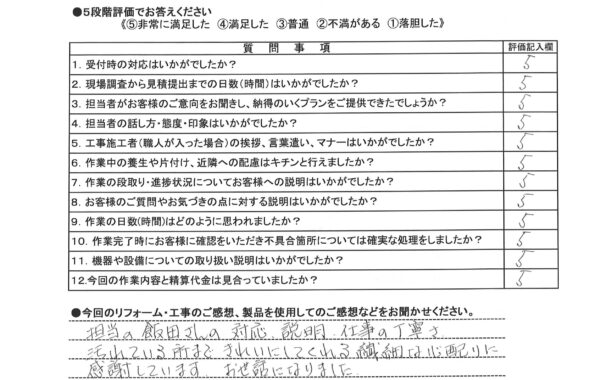 ●5段階評価でお答えください
《⑤非常に満足した ④満足した ③普通 ②不満がある ①落胆した》
質問事項 評価記入欄
1. 受付時の対応はいかがでしたか? 5
2. 現場調査から見積提出までの日数(時間)はいかがでしたか? 5
3. 担当者がお客様のご意向をお聞きし、納得のいくプランをご提供できたでしょうか? 5
4. 担当者の話し方・態度・印象はいかがでしたか? 5
5. 工事施工者(職人が入った場合)の挨拶、言葉遣い、マナーはいかがでしたか? 5
6. 作業中の養生や片付け、近隣への配慮はキチンと行えましたか? 5
7. 作業の段取り・進捗状況についてお客様への説明はいかがでしたか? 5
8. お客様のご質問やお気づきの点に対する説明はいかがでしたか? 5
9. 作業の日数(時間)はどのように思われましたか? 5
10. 作業完了時にお客様に確認をいただき不具合箇所については確実な処理をしましたか? 5
11. 機器や設備についての取り扱い説明はいかがでしたか? 5
12.今回の作業内容と精算代金は見合っていましたか? 5
●今回のリフォーム・工事のご感想、製品を使用してのご感想などをお聞かせください。
担当の飯田さんの対応、説明、仕事の丁寧さ
汚れている所まできれいにしてくれる繊細な心配りに
感謝しています。お世話になりました。